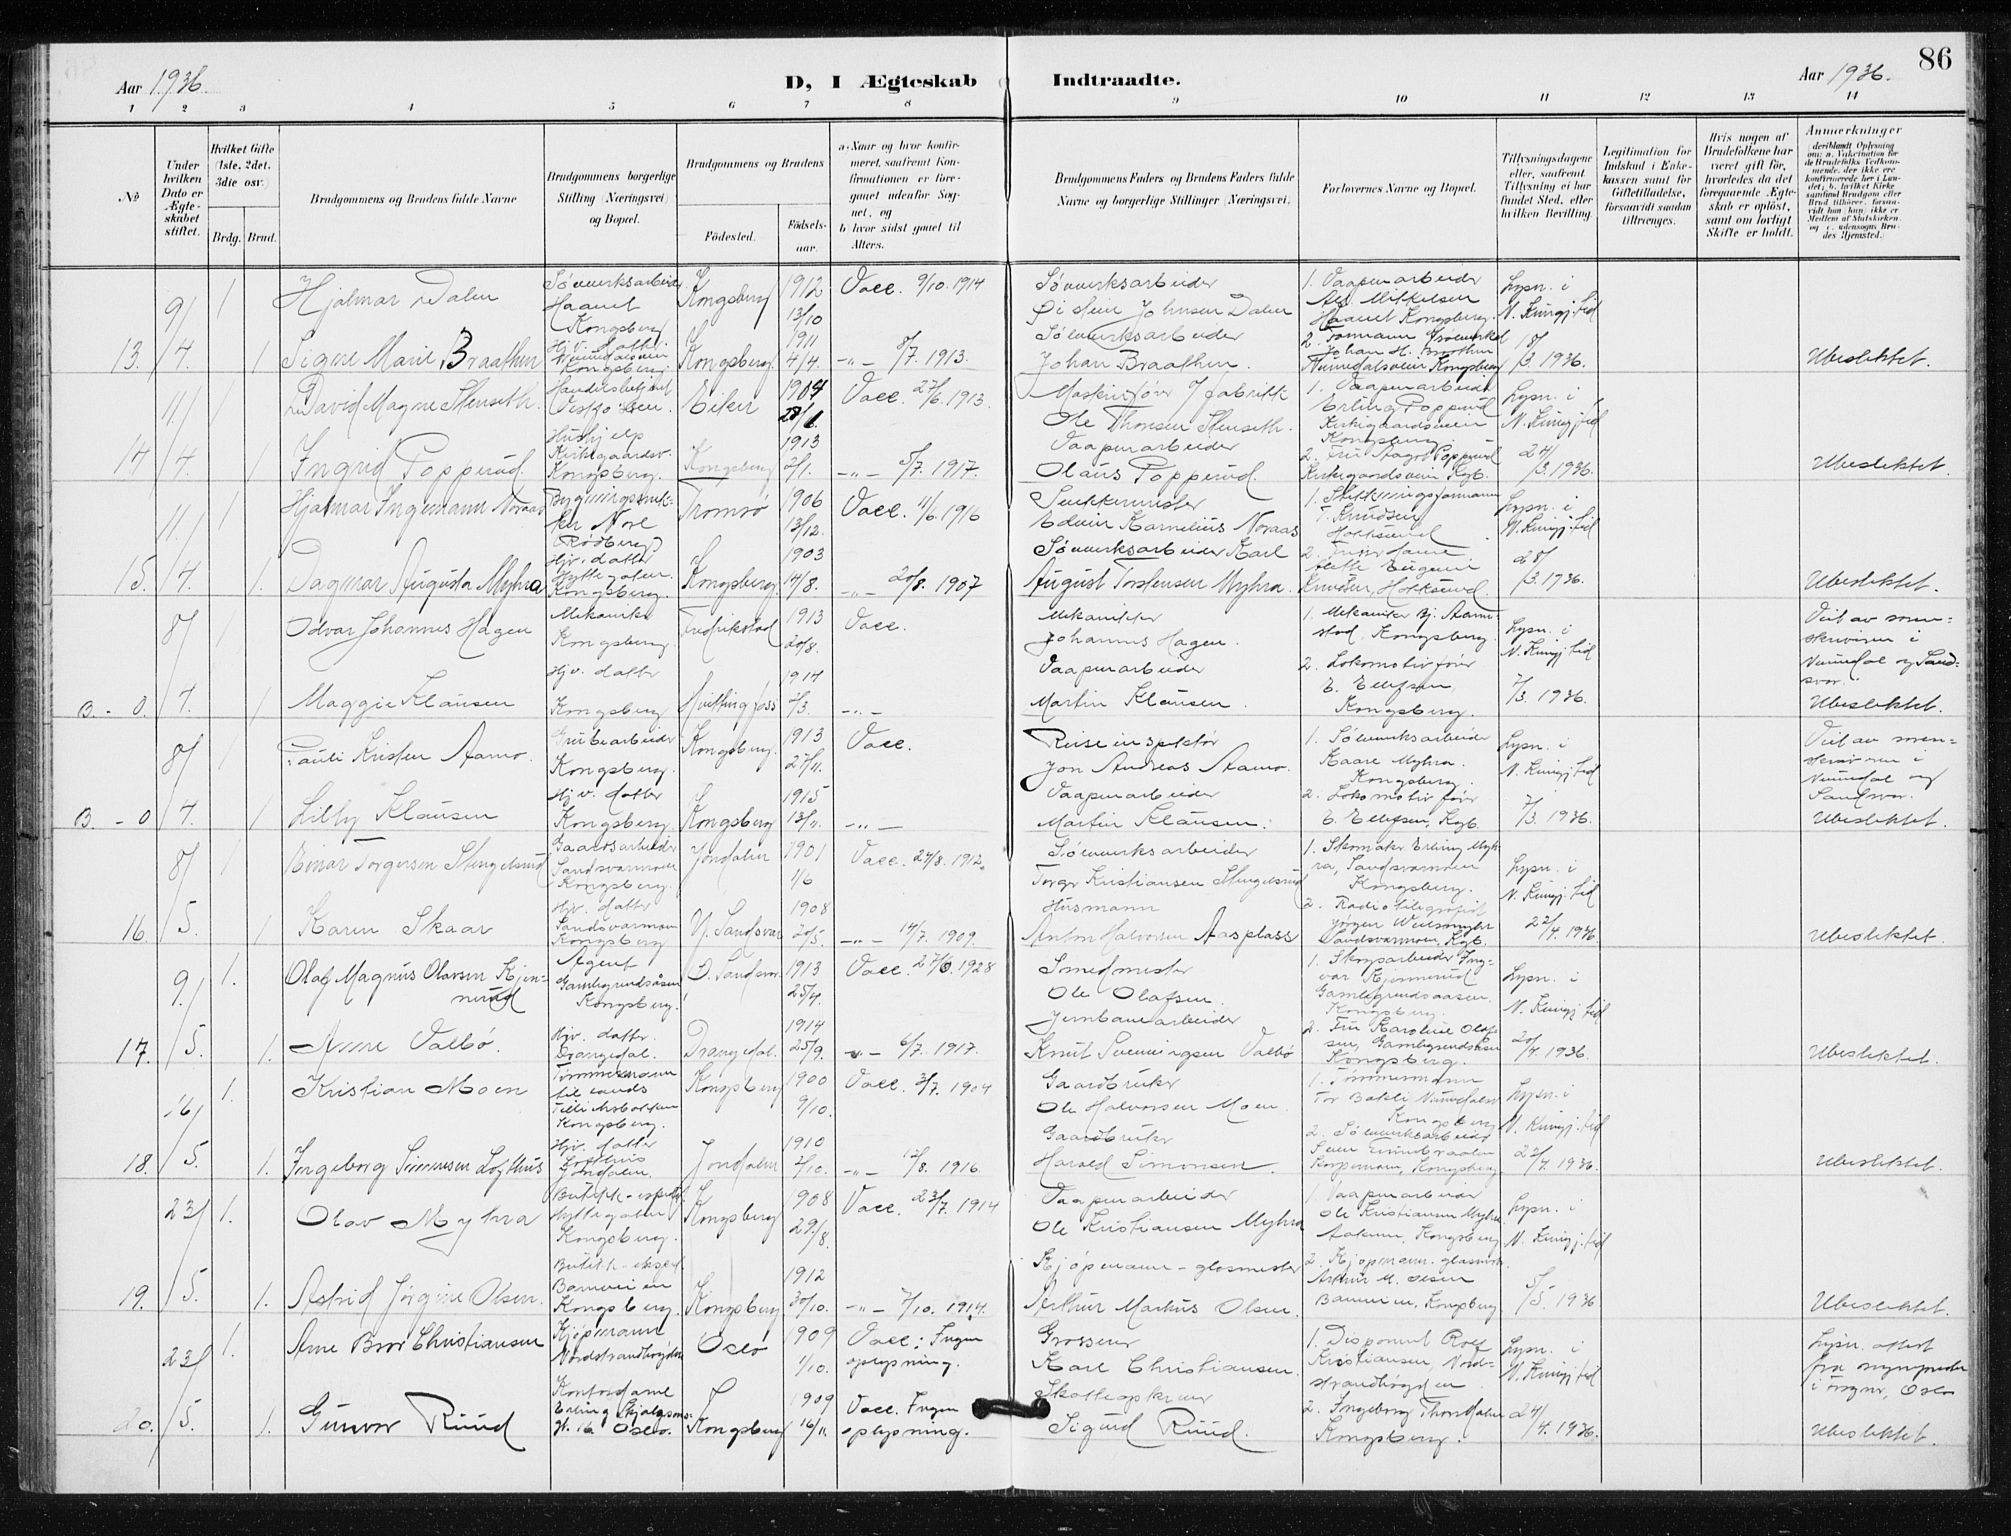 86
Aar 1936.
D, I Ægteskab Indtraadte.
Aar 1936.
1 2 3 4 5 6 7 8 9 10 11 12 13 14
No
Under hvilken Dato er Ægteskabet stiftet.
Hvilket Gifte (1ste, 2det, 3die osv.)
Brdg. Brud.
Brudgommens og Brudens fulde Navne
Brudgommens borgerlige Stilling (Næringsvei) og Bopæl.
Brudgommens og Brudens
Fødested. Fødselsaar.
a. Naar og hvor konfirmeret, saafremt Konfirmationen er foregaaet udenfor Sognet, og
b. hvor sidst gaaet til Alters.
Brudgommens Faders og Brudens Faders fulde Navne og borgerlige Stillinger (Næringsvei).
Forlovernes Navne og Bopæl.
Tillysningsdagene eller, saafremt Tillysning ei har fundet Sted, efter hvilken Bevilling.
Legitimation for Indskud i Enkekassen samt for Giftetilladelse, forsaavidt saadan tiltrænges.
Hvis nogen af Brudefolkene har været gift før, hvorledes da det foregaaende Ægteskab er opløst, samt om lovligt Skifte er holdt.
Anmerkninger
9/ 1 Hjalmar Dalen Sølvverksarbeider Haavet Kongsberg Kongsberg 1912 13/10 Vacc. 9/10. 1914 Sølvverksarbeider Øistein Johnsen Dalen 1. Vaapenarbeider Alf Mikkelsen Haavet Kongsberg. Lysn. i N. Kungj. tid
13. 4. 1 Signe Marie Braathen Hjv. datter Numedalsveien Kongsberg Kongsberg. 1911 4/4. -"- 8/7. 1913. Sølvverksarbeider Johan Braathen. 2. Johan H. Braathen Numedalsveien Kongsberg 18/3. 1936. Ubeslektet.
11/ 1 David Magne Stenseth. Vestfossen. Eiker 1904 28/1. Vacc. 27/6. 1913. Maskinfører i fabrikk Ole Thorsen Stenseth. 1. Vaapenarbeider Erling Popperud Kirkegaardsveien Kongsberg. Lysn. i N. Kungj. tid
14 4. 1 Ingrid Popperud. Hushjelp Kirkegaardsv. Kongsberg. Kongsberg 1913 2/1. -"- 5/7. 1917. Vaapenarbeider Olaus Popperud. 2. Fru Aagot Popperud Kirkegaardsveien Kgb. 24/3. 1936. Ubeslektet.
11/ 1 Hjalmar Ingemann Noraas Nore Rødberg) Tromsø 1906 13/12. Vacc. 11/6. 1916 Snekkermester Edvin Kornelius Noraas T. Knudsen Hokksund Lysn. i N. Kungj. tid
15. 4. 1. Dagmar Augusta Myhra Hjv. datter Hyttegaten. Kongsberg. Kongsberg. 1903 14/8. -"- 20/8. 1907 Sølvverksarbeider Karl August Torstensen Myhra. Knudsen, Hokksund. 28/3. 1936. Ubeslektet.
8/ 1 Odvar Johannes Hagen Mekaniker Kongsberg. Fredrikstad 1913 20/8. Vacc. Mekaniker Johannes Hagen. 1. Mekaniker Bj. Kongsberg. Lysn. i N. Kungj. tid Viet av sorenskriveren i Numedal og Sandsvær.
B. - 0. 4. 1 Maggie Klausen Hjv. datter Kongsberg Hvittingfoss 1914 2/3. -"- Vaapenarbeider Martin Klausen 2. Lokomotivfører E. Ellefsen Kongsberg. 7/3. 1936. Ubeslektet.
8/ 1 Pauli Kristen Aamo. Grubearbeider Kongsberg. Kongsberg. 1913 27/11. Vacc. Reiseinspektør Jon Andreas Aamo. 1. Sølvverksarbeider Kaare Myhra. Kongsberg. Lysn. i N. Kungj. tid Viet av sorenskriveren i Numedal og Sandsvær.
B. - 0 4. 1 Lilly Klausen Hjv. datter Kongsberg. Kongsberg 1915 13/11. -"- Vaapenarbeider Martin Klausen. 2. Lokomotivfører E. Ellefsen, Kgb. 7/3. 1936. Ubeslektet.
8/ 1 Einar Torgersen Stengelsrud Gaardsarbeider Sandsværmoen Kongsberg. Jondalen 1901 1/6 Vacc. 24/8. 1912. Sølvverksarbeider Torger Kristiansen Stengelsrud 1. Skomaker Erling Myhra, Sandsværmoen Kongsberg. Lysn. i N. Kungj. tid
16. 5. 1. Karen Skaar Hjv. datter Sandsværmoen Kongsberg Y. Sandsvær 1908 20/5. -"- 14/7. 1909. Husmann Anton Halvorsen Aasplass 2. Radiotelegrafist Jørgen Sandsværmoen, Kgb. 22/4. 1936. Ubeslektet.
9./ 1. Olaf Magnus Olavsen Kjennerud Agent Gamlegrendsåsen Kongsberg. Ø. Sandsvær. 1913 25/4. Vacc. 27/6. 1928 Smedmester Ole Olafsen. 1. Skogsarbeider Ingvar Kjennerud Gamlegrendsaasen. Kongsberg. Lysn. i N. Kungj. tid
17. 5. 1. Anne Valbø. Hjv. datter. Drangedal. Drangedal. 1914 25/9. -"- 6/7. 1917. Jernbanearbeider Knut Svenningsen Valbø 2. Fru Karoline Olafsen, Gamlegrendsåsen Kongsberg. 20/4. 1936. Ubeslektet.
16/ 1. Kristian Moen Tømmermann Kongsberg. Kongsberg 1900 9/10. Vacc. 2/7. 1904 Gaardbruker Ole Halvorsen Moen. 1. Tømmermann Tor Bakli Kongsberg Lysn. i N. Kungj. tid
18. 5. 1. Ingeborg Simensen Lofthus Hjv. datter Lofthus Jondalen. Jondalen 1910 2/10. -"- 12/8. 1916. Gaardbruker Harald Simonsen 2. Sølvverksarbeider Kongsberg 22/4. 1936. Ubeslektet.
23/ 1. Olav Myhra Hyttegaten Kongsberg. Kongsberg 1908 29/8. Vacc. 23/7. 1914 Vaapenarbeider Ole Kristiansen Myhra 1. Vaapenarbeider Ole Kristiansen Myhra Kongsberg Lysn. i N. Kungj. tid
19. 5. 1. Astrid Jørgine Olsen. Butikk-eksped. Baneveien Kongsberg. Kongsberg 1912 30/10. -"- 7/10. 1914. Kjøpmann - glasmester Arthur Markus Olsen. 2. Kjøpmann - glasmester Arthur M. Olsen Baneveien, Kongsberg 5/5. 1936 Ubeslektet.
23/ 1. Arne Bror Christiansen Kjøpmann Nordstrandhøgden Oslo 1909 1/10. Vacc: Ingen oplysning. Grosserer Karl Christiansen. 1. Disponent Rolf Kristiansen, Nordstrandhøgden Lysn. i N. Kungj. tid Lysn. attest fra i Frogner, Oslo
20. 5. 1. Gunvor Ruud Kontordame Erling Skjalgsons gt. 16 Oslo. Kongsberg 1909 16/11 Vacc. Ingen oplysning. Skatteopkrever Sigurd Ruud. 2. Ingeborg Thorsdalen Kongsberg. 24/4. 1936. Ubeslektet.